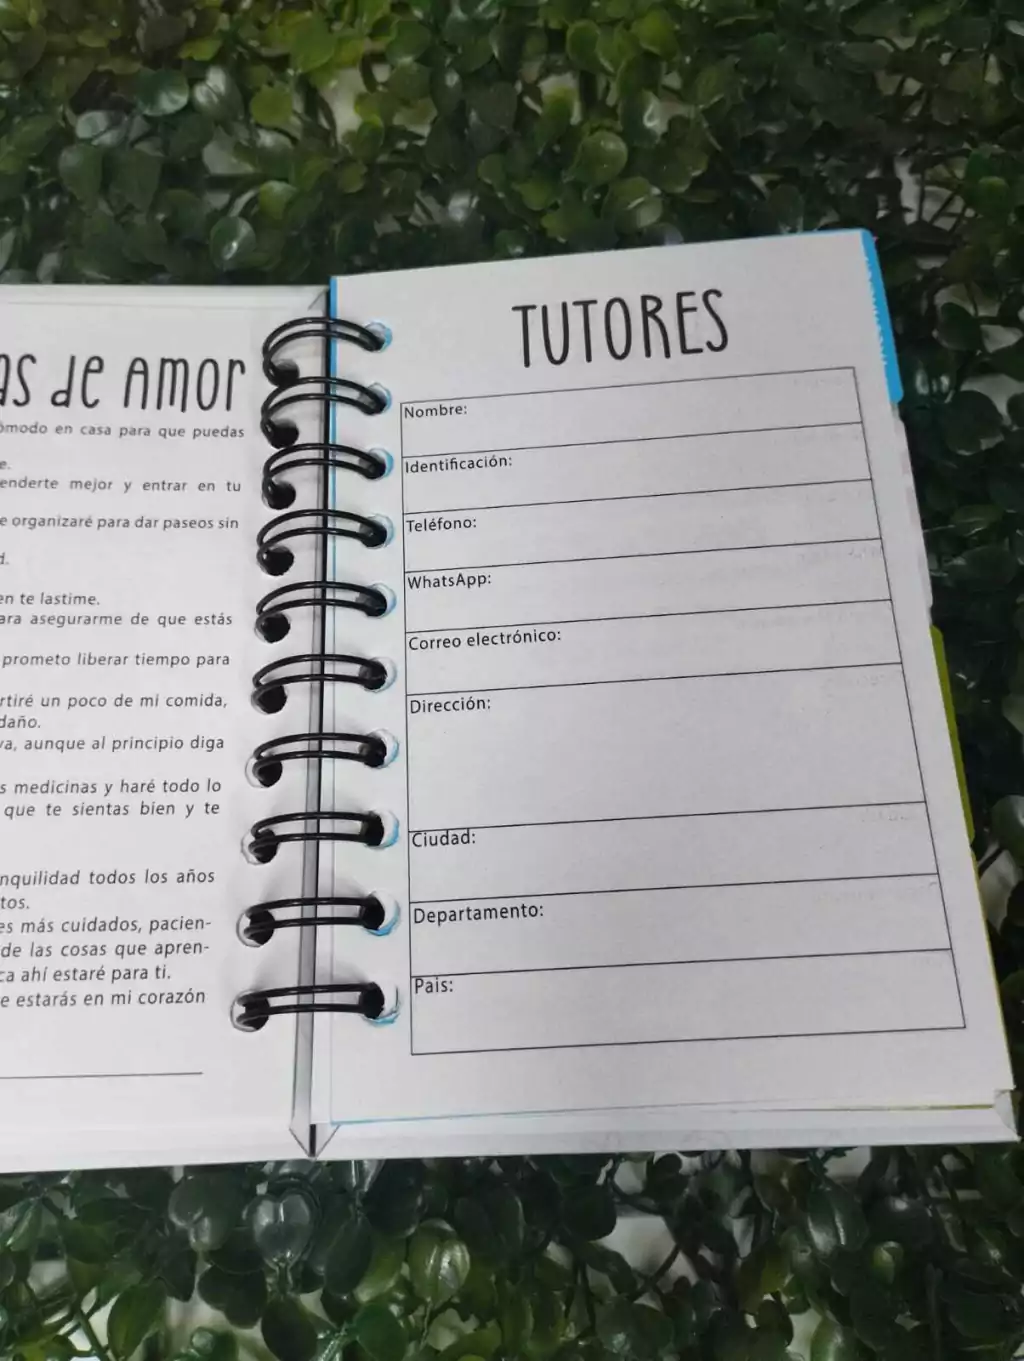 de Amor
en casa para que puedas
mejor y entrar en tu
organizaré para dar paseos sin
te lastime.
asegurarme de que estás
prometo liberar tiempo para
un poco de mi comida,
daño.
aunque al principio diga
medicinas y haré todo lo
que te sientas bien y te
todos los años
más cuidados, pacien-
de las cosas que apren-
ahí estaré para ti.
estarás en mi corazón
TUTORES
Nombre:
Identificación:
Teléfono:
WhatsApp:
Correo electrónico:
Dirección:
Ciudad:
Departamento:
Pais: